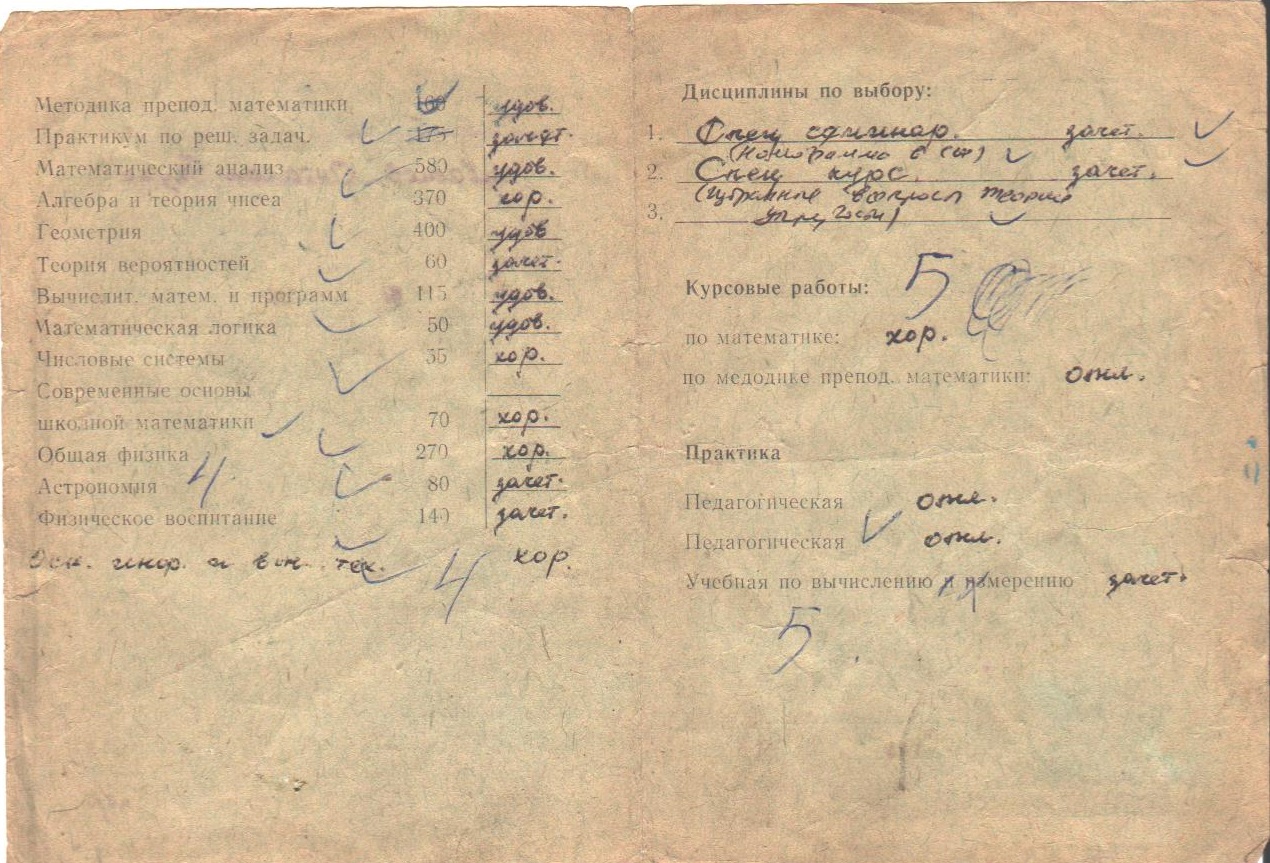 Методика препод. математики 100 удов.
Практикум по реш. задач. 175 зачет.
Математический анализ 580 удов.
Алгебра и теория чисеа 370 хор.
Геометрия 400 удов
Теория вероятностей 60 зачет.
Вычислит. матем. и программ 115 удов.
Математическая логика 50 удов.
Числовые системы 35 хор.
Современные основы
школной математики 70 хор.
Общая физика 270 хор.
Астрономия 4 80 зачет.
Физическое воспитание 140 зачет.
Осн. инф. и выч. тех. 4 хор.
Дисциплины по выбору:
1. Спец семинар. зачет.
2. Спец курс. зачет.
вопросы теории
3.
Курсовые работы: 5
по математике: хор.
по медодике препод. математики: отл.
Практика
Педагогическая отл.
Педагогическая отл.
Учебная по вычислению и измерению зачет.
5